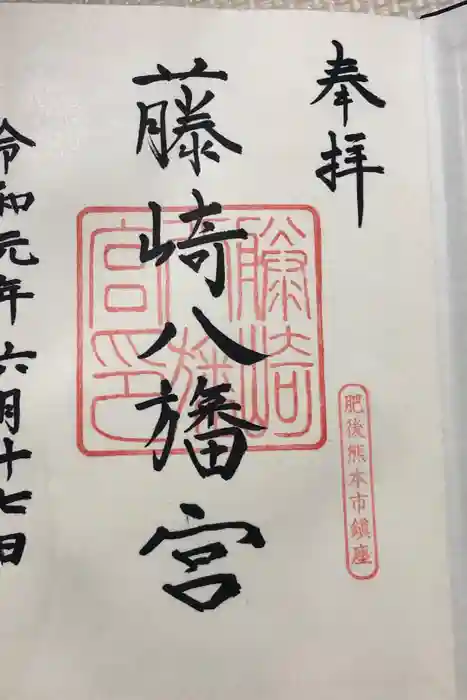 奉拝
肥後熊本市鎮座
藤崎八旛宮
藤崎八旛宮印
令和元年六月十七日